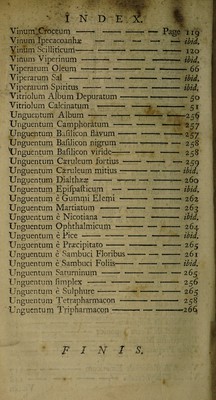 INDEX.
Vinum Croceum — — — — Page 119
Vinum Ipecacoanhæ — — — — ibid.
Vinum Scilliticum — — — — 120
Vinum Viperinum — — — — ibid.
Viperarum Oleum — — — — 66
Viperarum Sal — — — — ibid.
Viperarum Spiritus — — — — ibid.
Vitriolum Album Depuratum — — 50
Vitriolum Calcinatum — — — 51
Unguentum Album — — — — 256
Unguentum Camphoratum — — — 257
Unguentum Basilicon flavum — — — 257
Unguentum Basilicon nigrum — — — 258
Unguentum Basilicon viride — — — 258
Unguentum Cæruleum fortius — — — 259
Unguentum Cæruleum mitius — — — ibid.
Unguentum Dialthææ — — — — 260
Unguentum Epispasticum — — — ibid.
Unguentum è Gummi Elemi — — — 262
Unguentum Martiatum — — — 263
Unguentum è Nicotiana — — — ibid.
Unguentum Ophthalmicum — — — 264
Unguentum è Pice — — — — ibid.
Unguentum è Præcipitato — — — 265
Unguentum è Sambuci Floribus — — — 261
Unguentum è Sambuci Foliis — — — ibid.
Unguentum Saturninum — — — 265
Unguentum simplex — — — — 256
Unguentum è Sulphure — — — 265
Unguentum Tetrapharmacon — — — 258
Unguentum Tripharmacon — — — 266
FINIS.